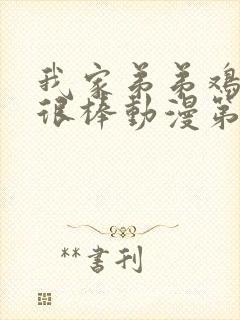 我家弟弟鸡
很棒動漫第
**書刊